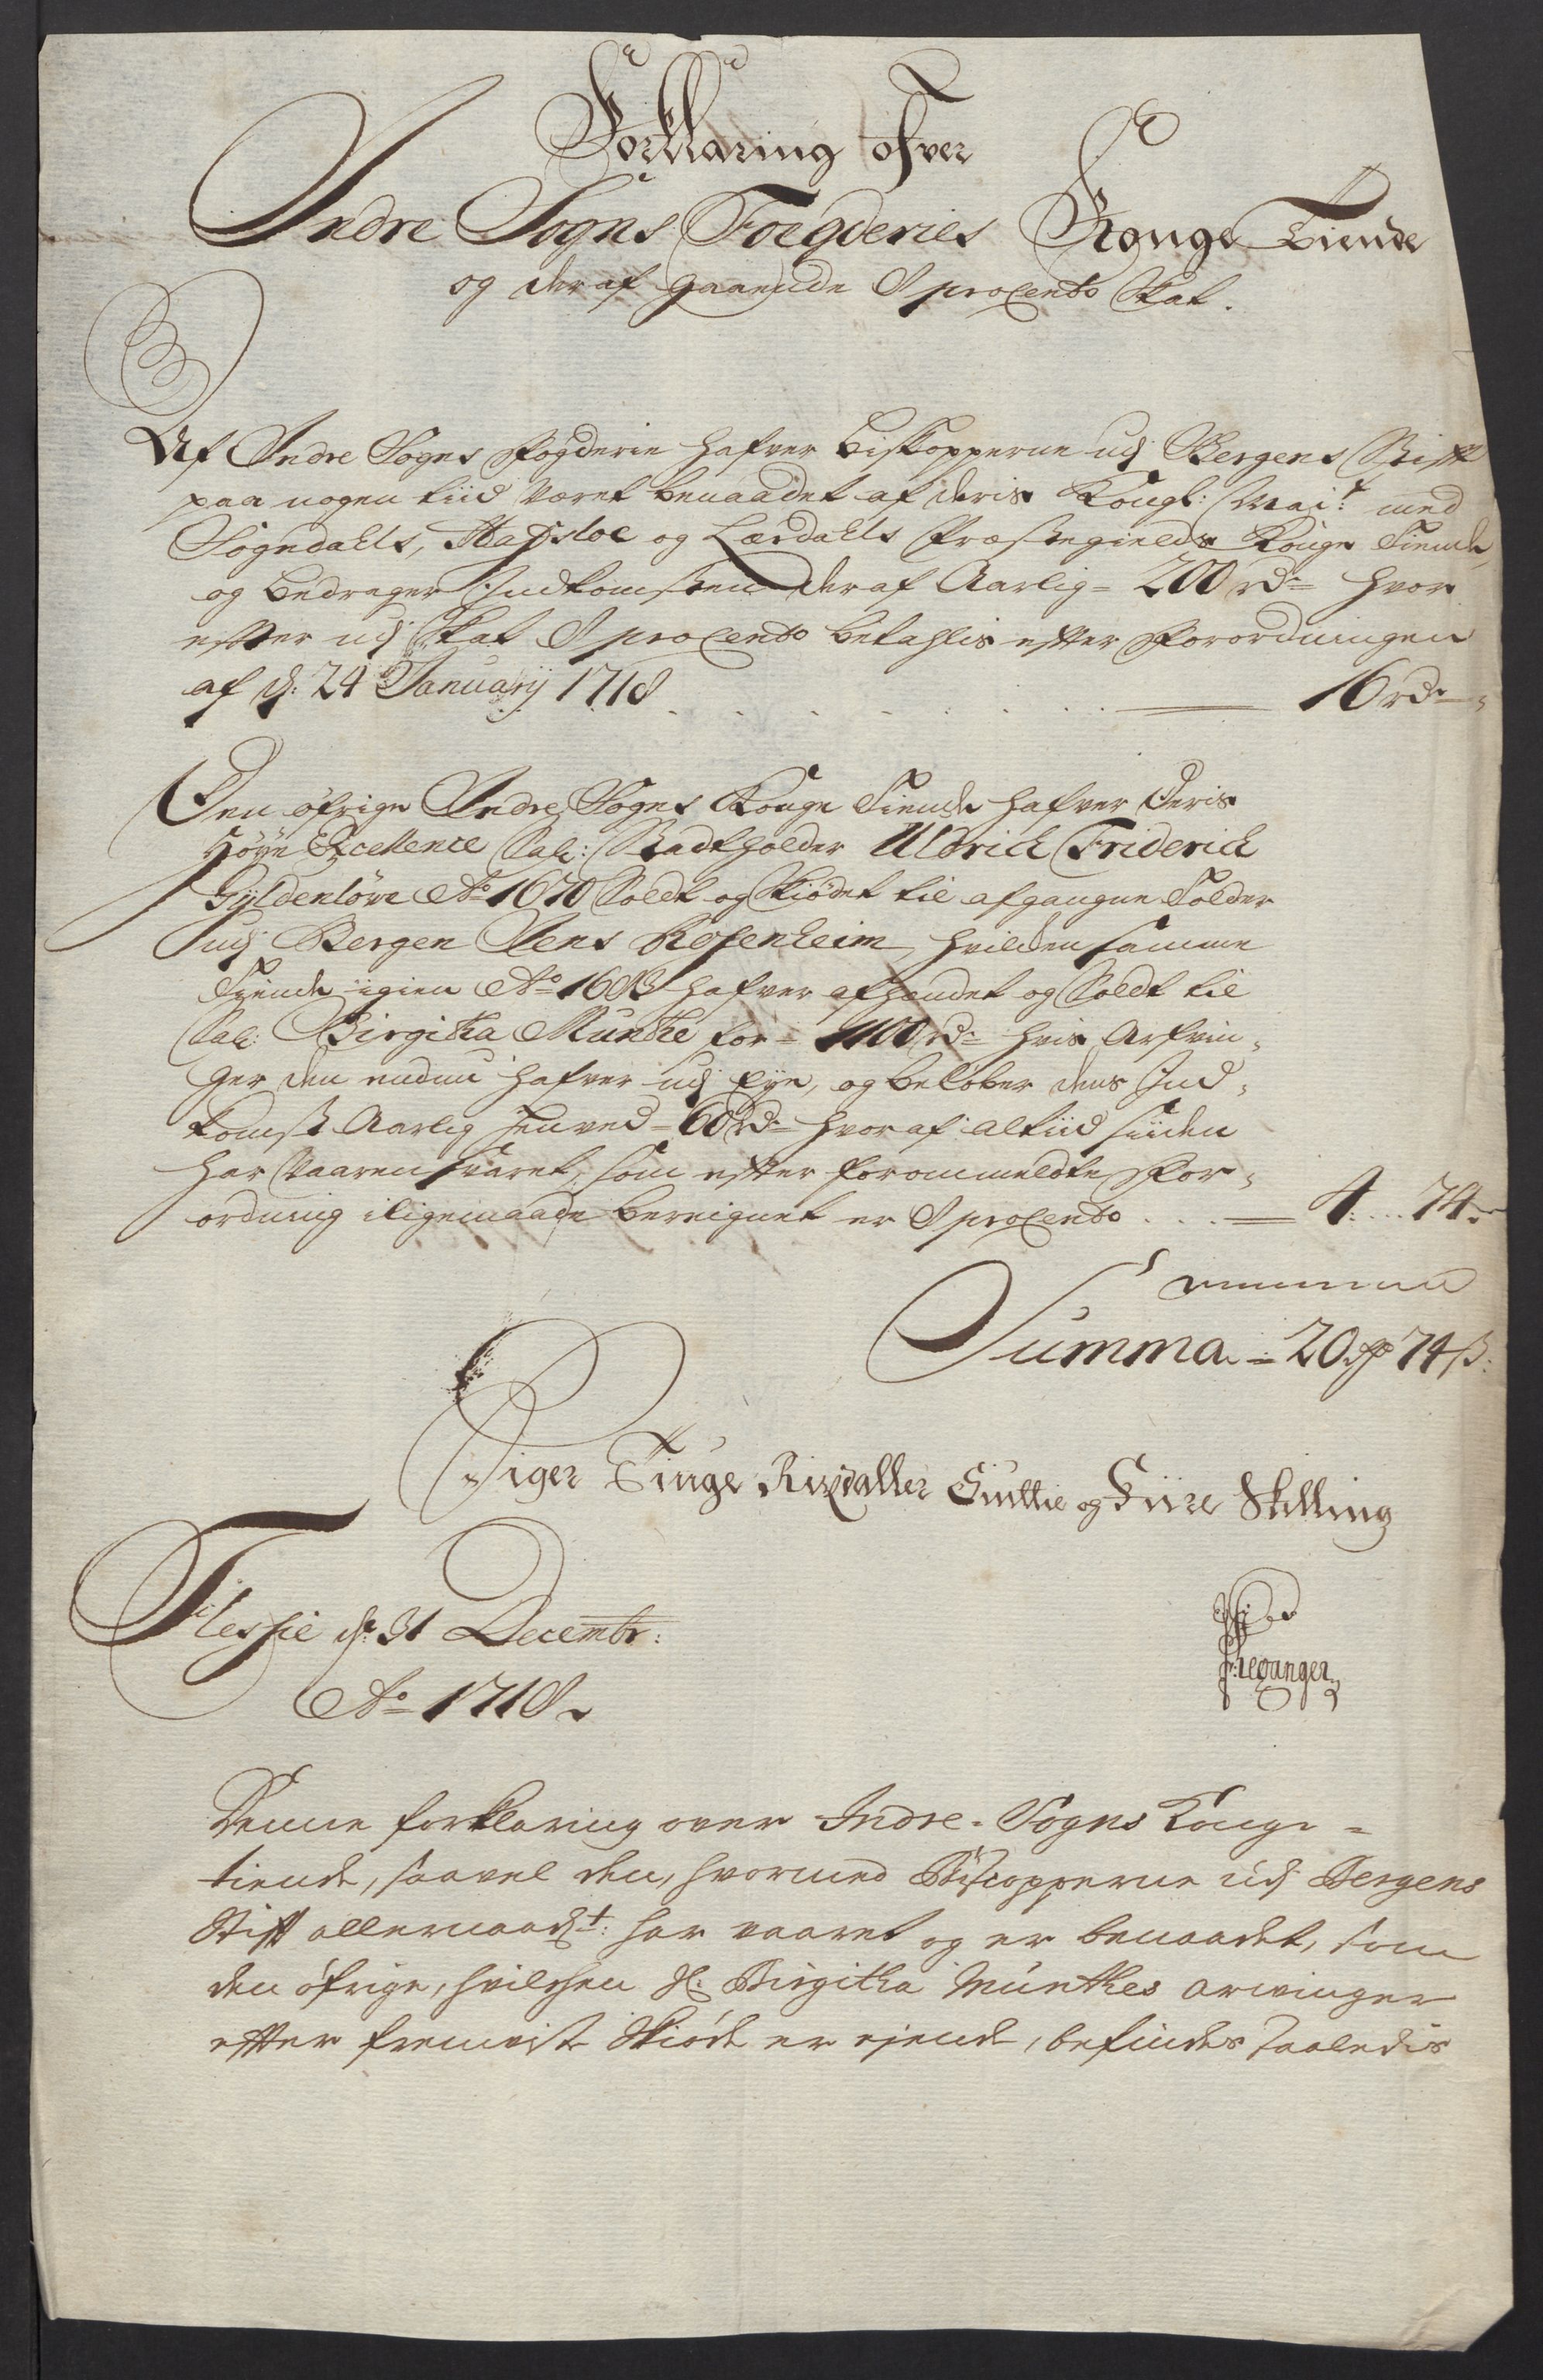 Forklaring ofver
Indre Sogns Foegderies Konge Tiende
og deraf gaaende 8 procento Skat.
Af Indre Sogns Fogderie hafver biskopperne udj Bergens Stift
paa nogen tiid været benaadet af deris Kongl: Mai:t med
Sogndahls, Hafsloe og Lærdahls Præstegields Konge Tiende,
og bedrager Indkomsten deraf Aarlig = 200 rd= hvor
efter udj Skat 8 procento betahlis efter Forordningen
af d: 24 January 1718 . . . . . . . 16 rd
Den öfrige Indre Sogns Konge Tiende hafver Deris
Höye Excellence Sal: Stadtholder Uldrich Friderich
Gyldenlöve Ao 1670 Soldt og Skiödet til afgangne Tolder
udj Bergen Jens Rosenheim, hvilcken samme
Tiende igien Ao 1683 hafver afhændet og Soldt til
Sal: Birgitha Munthe for = 1100 rd= hvis Arfvin-
ger den endnu hafver udj eye, og belöber dens Ind-
komst Aarlig henved = 60 rd= hvoraf altiid siiden
har Vaaren svaret, som efter forommeldte For-
ordning iligemaade beregnet er 8 procento . . . 4 . . . 74
Summa = 20 rd 74 s:
Siger Tiuge Rixdaller Siuttie og Fiire Skilling
Flessie d: 31 Decembr:
Ao 1718
Denne forklaring over Indre-Sogns Konge-
tiende, saavel den, hvormed Biscopperne udj Bergens
Stift allernaadt: har vaaret og er benaadet, som
den öfrige, hvilchen Sl: Birgitha Münthes arvinger
efter fremviste Skiöde er ejende, befindes saaledis